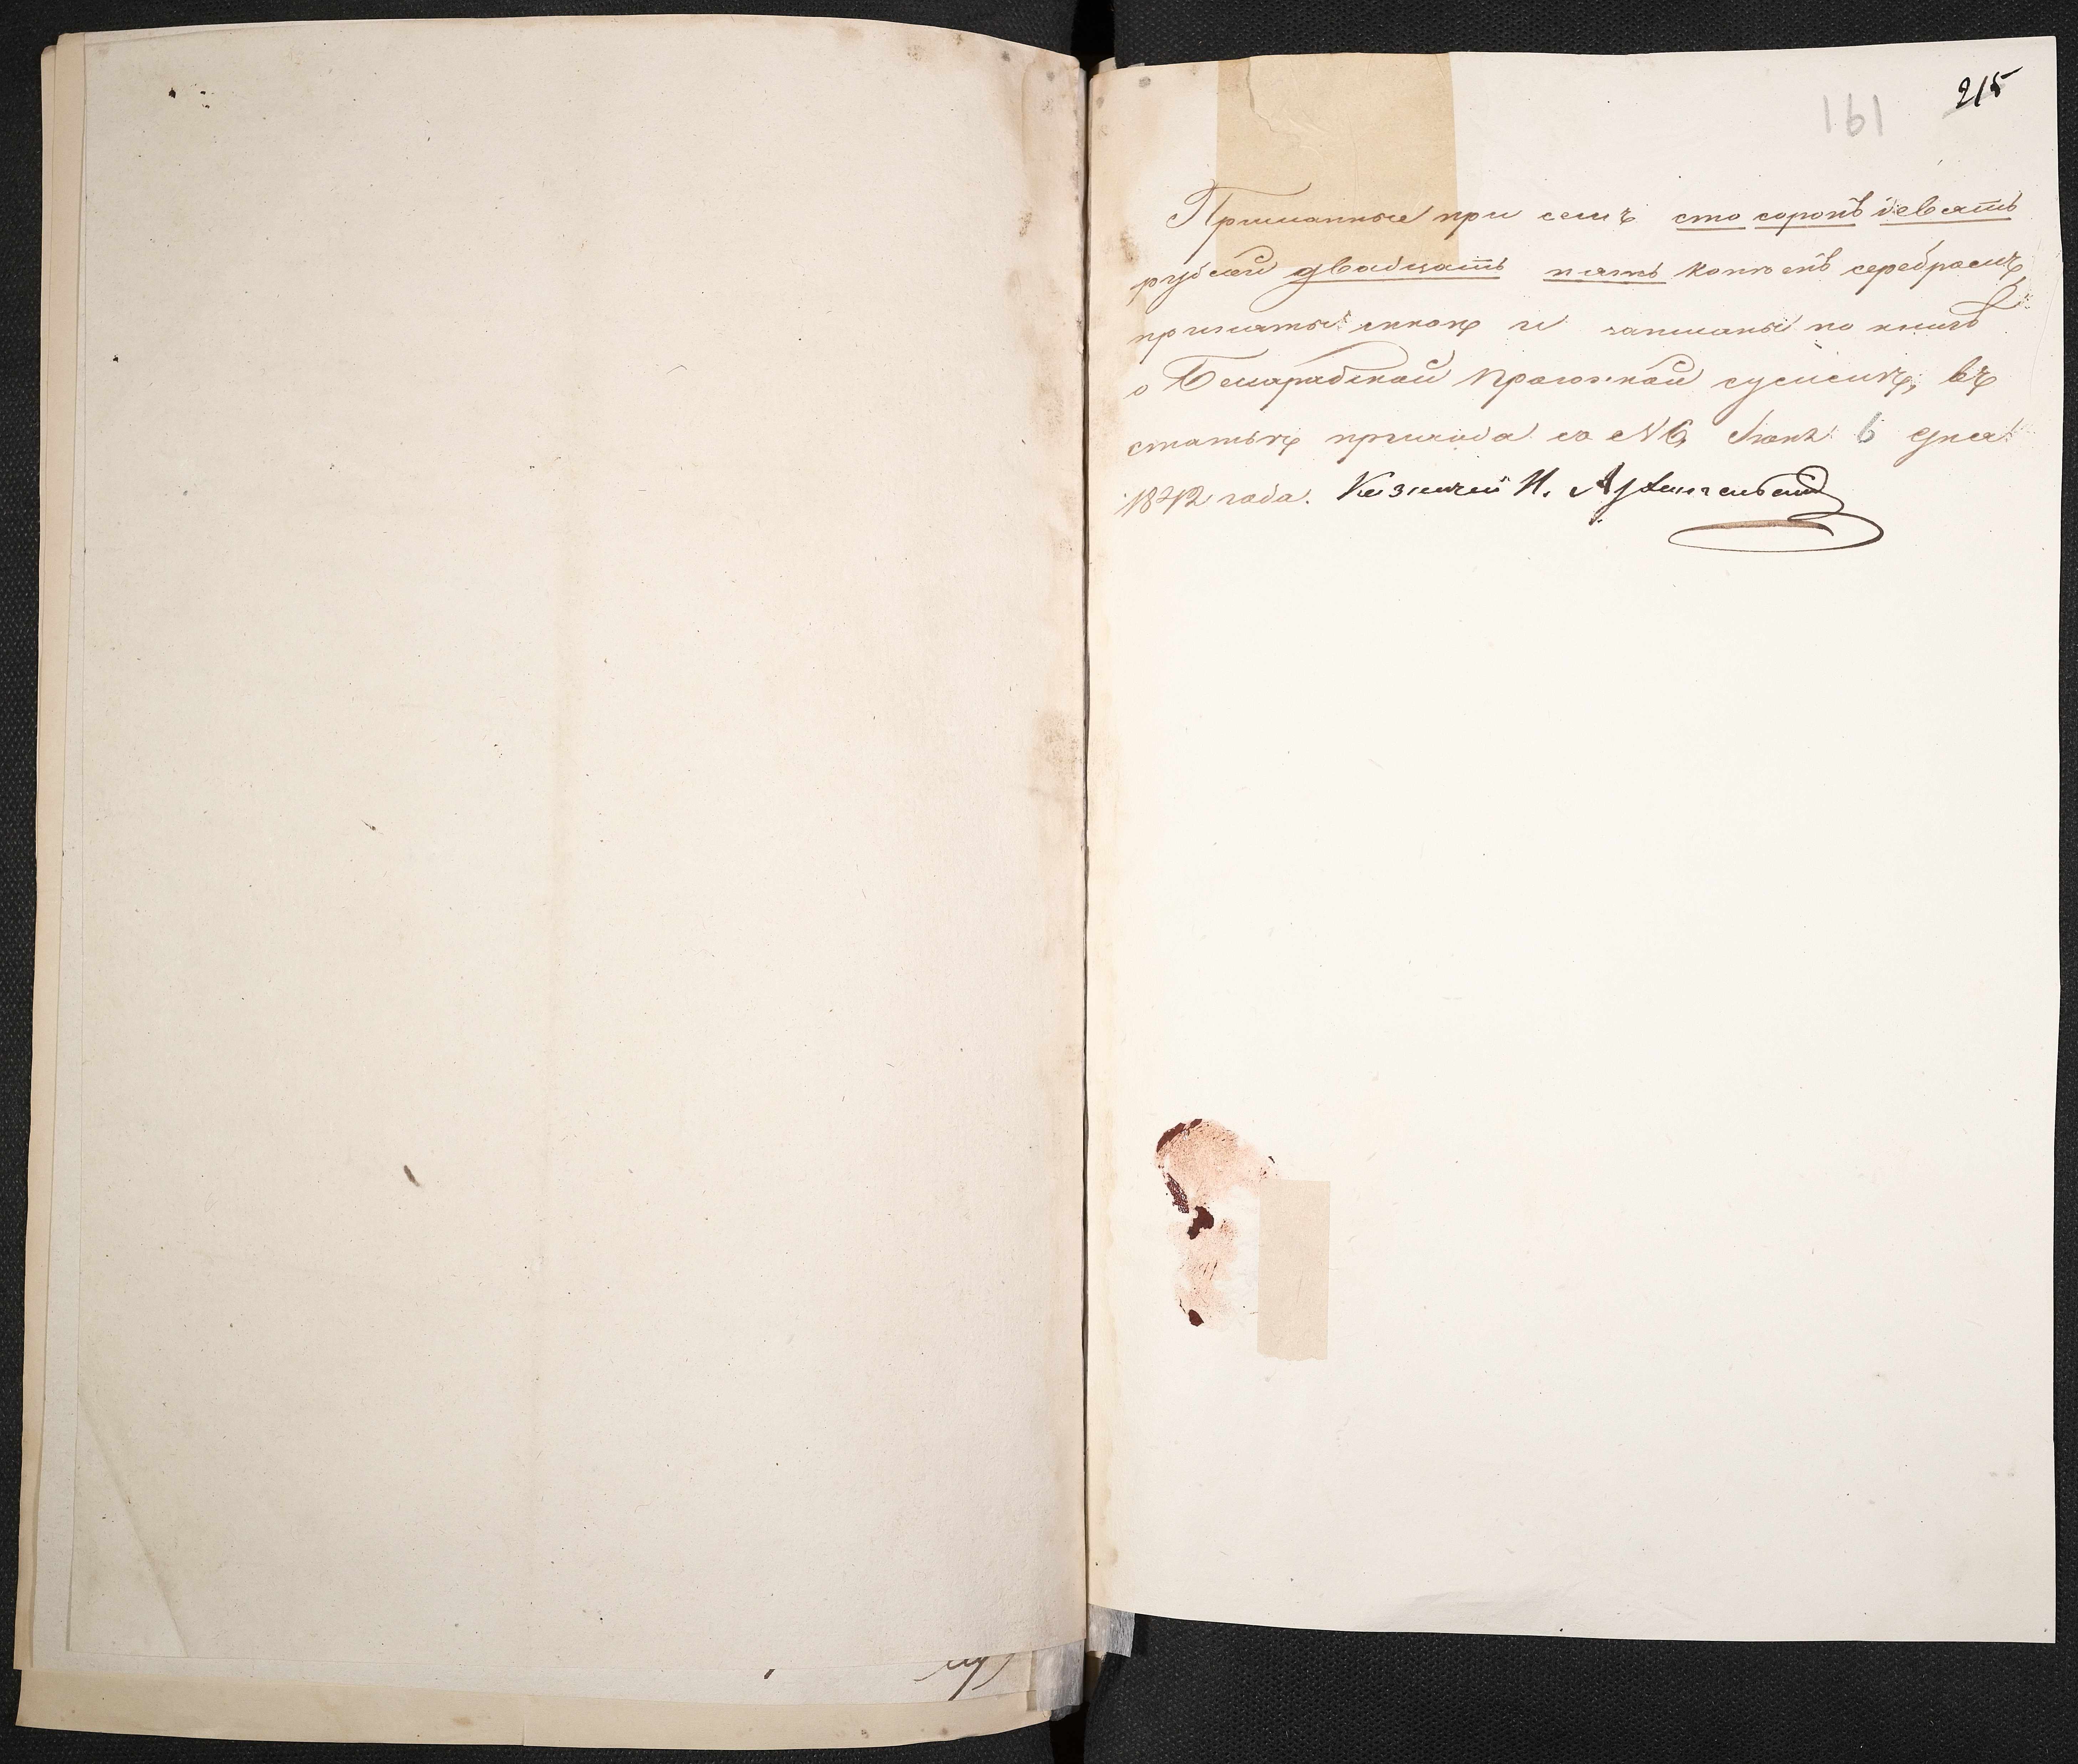 215
161
Присланные при семъ сто сорокъ девять
рублей двадцать пять копѣекъ серебромъ,
приняты мною и записаны по книгѣ
о Бессарабской прогонной суммѣ, въ
статьѣ прихода за №6, Июня 6 дня
1842 года. Казначей И. Архангельскій